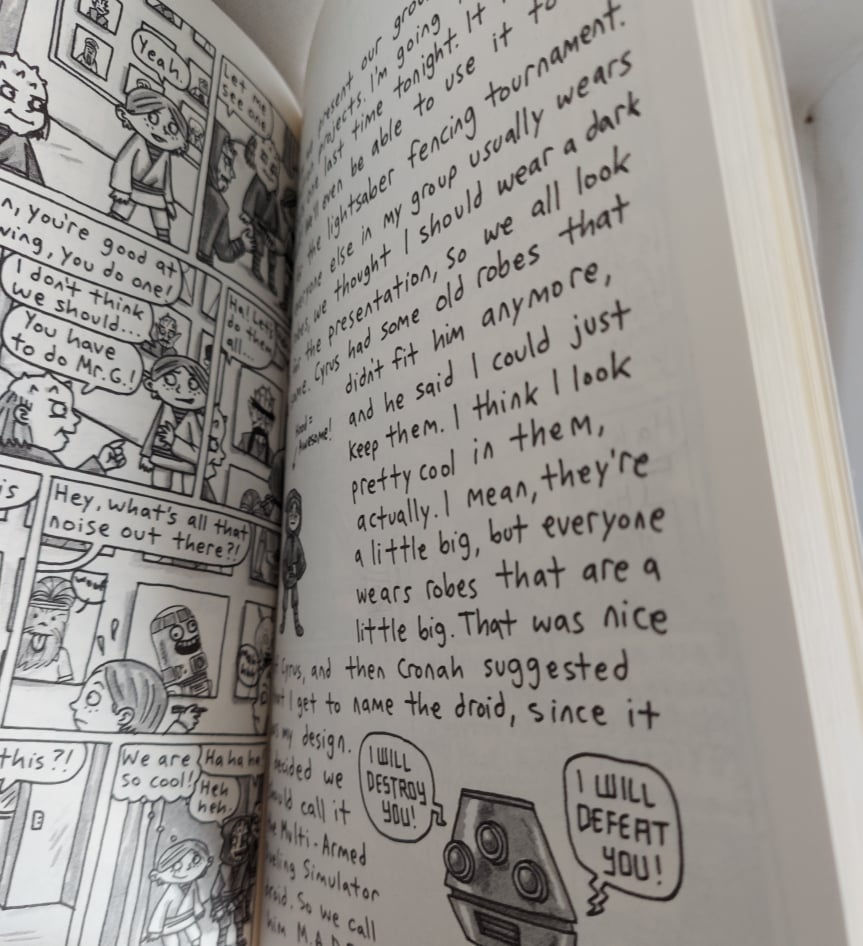 Yeah.
Let me
see one
n, you're good at
wing, you do one!
I don't think
we should...
You have
to do Mr. G.!
Ha! Let's
do them
all...
is
Hey, what's all that
noise out there?!
this?!
We are
so cool!
Ha ha ha
Heh
heh.
present our
projects. I'm going
one last time tonight. It
even be able to use it to
the lightsaber fencing tournament.
else in my group usually wears
we thought I should wear a dark
the presentation, so we all look
Cyrus had some old robes that
didn't fit him anymore,
and he said I could just
keep them. I think I look
pretty cool in them,
actually. I mean, they're
a little big, but everyone
wears robes that are a
little big. That was nice
Hood =
Awesome!
Cyrus, and then Cronah suggested
I get to name the droid, since it
my design.
decided we
call it
Multi-Armed
Simulator
So we call
I WILL
DESTROY
YOU!
I WILL
DEFEAT
YOU!